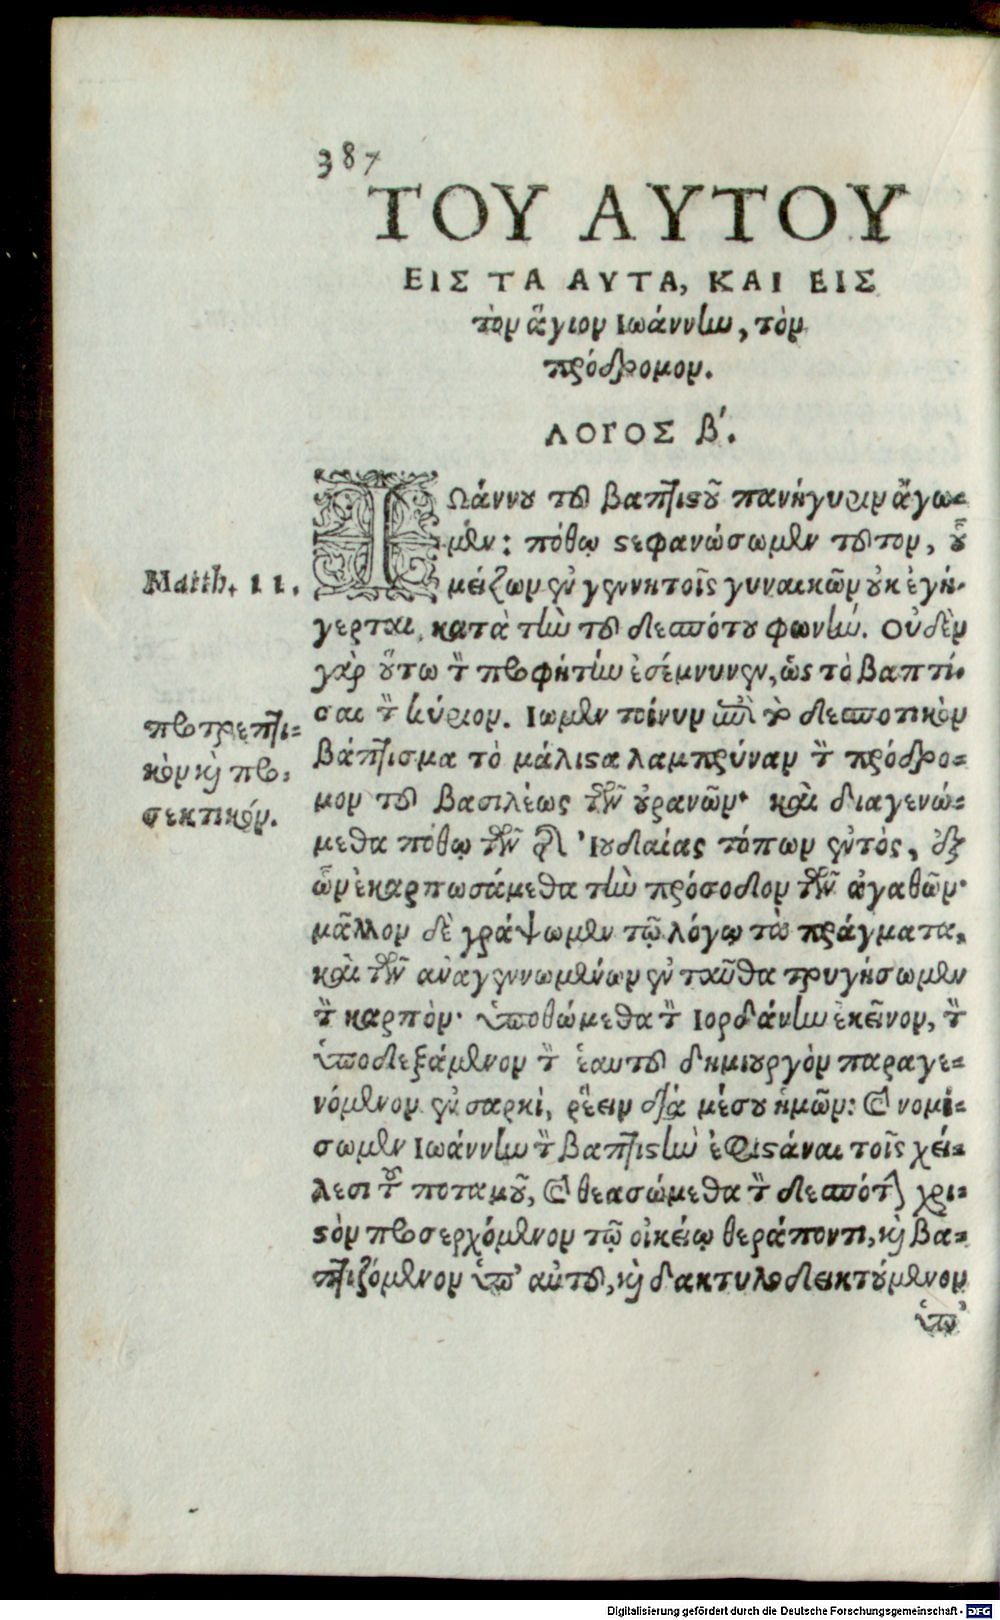 387
ΤΟΥ ΑΥΤΟΥ
ΕΙΣ ΤΑ ΑΥΤΑ, ΚΑΙ ΕΙΣ
τὸν ἅγιον Ιωάννην, τὸν
πρόδρομον.
ΛΟΓΟΣ β΄.
ΙΩάννου τοῦ βαπτιστοῦ πανήγυριν ἄγω-
μεν: πόθῳ στεφανώσωμεν τοῦτον, οὗ
Matth. 11.
μείζων ἐν γεννητοῖς γυναικῶν οὐκ ἐγή-
γερται, κατὰ τὴν τοῦ δεσπότου φωνήν. Οὐδὲν
γὰρ οὕτω τὸν προφήτην ἐσέμνυνεν, ὡς τὸ βαπτί-
σαι τὸν κύριον. Ιωμεν τοίνυν ἐπὶ τὸ δεσποτικὸν
προτρεπτι-
κὸν καὶ προ-
σεκτικόν.
βάπτισμα τὸ μάλιστα λαμπρύναν τὸν πρόδρο-
μον τοῦ βασιλέως τῶν οὐρανῶν· καὶ διαγενώ-
μεθα πόθῳ τῶν τῆς Ἰουδαίας τόπων ἐντὸς, ἐξ
ὧν ἐκαρπωσάμεθα τὴν πρόσοδον τῶν ἀγαθῶν·
μᾶλλον δὲ γράψωμεν τῷ λόγῳ τὰ πράγματα,
καὶ τῶν ἀναγεννωμένων ἐνταῦθα τρυγήσωμεν
τὸν καρπὸν· ὑποθώμεθα τὸν Ιορδάνην ἐκεῖνον, τὸν
ὑποδεξάμενον τὸν ἑαυτοῦ δημιουργὸν παραγε-
νόμενον ἐν σαρκὶ, ῥέειν διὰ μέσου ἡμῶν: καὶ νομί-
σωμεν Ιωάννην τὸν βαπτιστὴν ἐφιστάναι τοῖς χεί-
λεσι τοῦ ποταμοῦ, καὶ θεασώμεθα τὸν δεσπότην χρι-
στὸν προσερχόμενον τῷ οἰκείῳ θεράποντι, καὶ βα-
πτιζόμενον ὑπ' αὐτοῦ, καὶ δακτυλοδεικτούμενον
ὑπ'
Digitalisierung gefördert durch die Deutsche Forschungsgemeinschaft - DFG